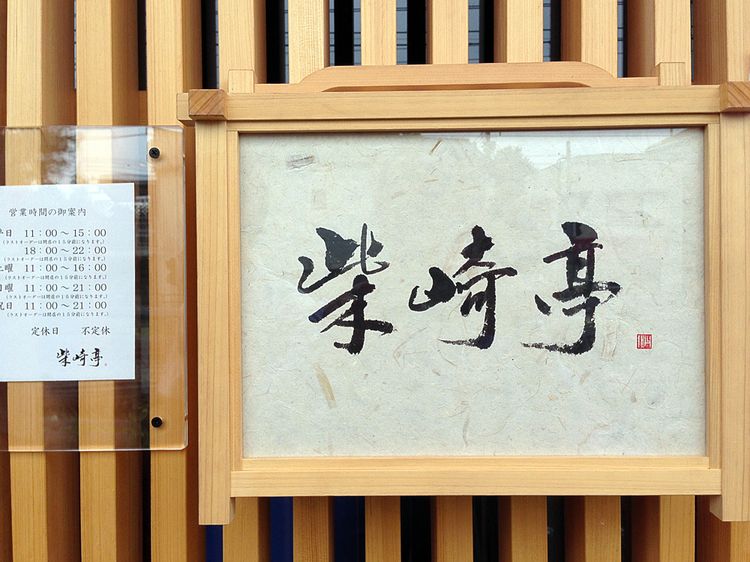 営業時間の御案内
日 11:00〜15:00
(ラストオーダーは閉店の15分前になります。)
18:00〜22:00
(ラストオーダーは閉店の15分前になります。)
曜 11:00〜16:00
(ラストオーダーは閉店の15分前になります。)
曜 11:00〜21:00
(ラストオーダーは閉店の15分前になります。)
祝日 11:00〜21:00
(ラストオーダーは閉店の15分前になります。)
定休日 不定休
柴崎亭
柴崎亭